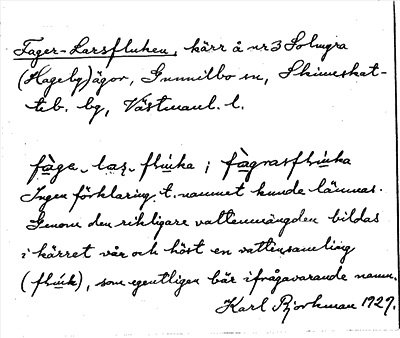 Fager-Larsfluken, kärr å nr 3 Solmyra
(Hageby) ägor, Gunnilbo sn, Skinnskat-
teb. bg, Västmanl. l.
fàge- las- flu̇ka ; fàgrasflu̇ka
Ingen förklaring t. namnet kunde lämnas.
Genom den rikligare vattenmängden bildas
i kärret vår och höst en vattensamling
(flu̇k), som egentligen bär ifrågavarande namn.
Karl Bjorkman 1929.